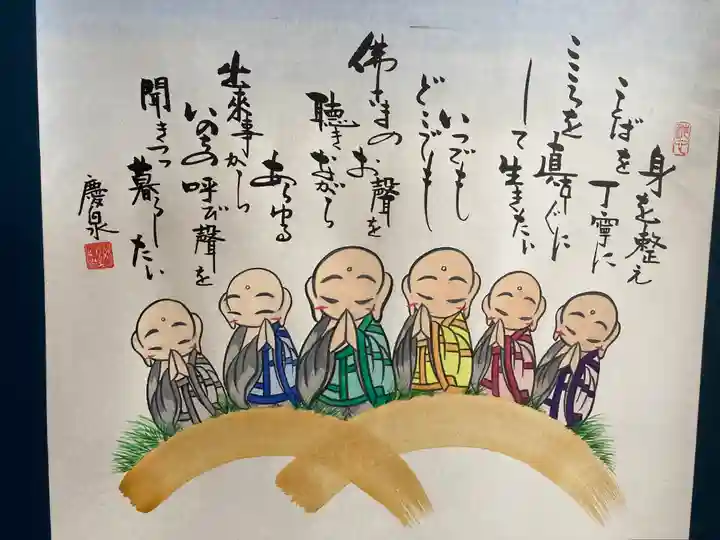 身を整え
ことばを丁寧に
こころを真直ぐに
して生きたい
いつでも
どこでも
佛さまのお聲を
聴きながら
あらゆる
出来事から
いのちの呼び聲を
聞きつつ
暮らしたい
慶泉